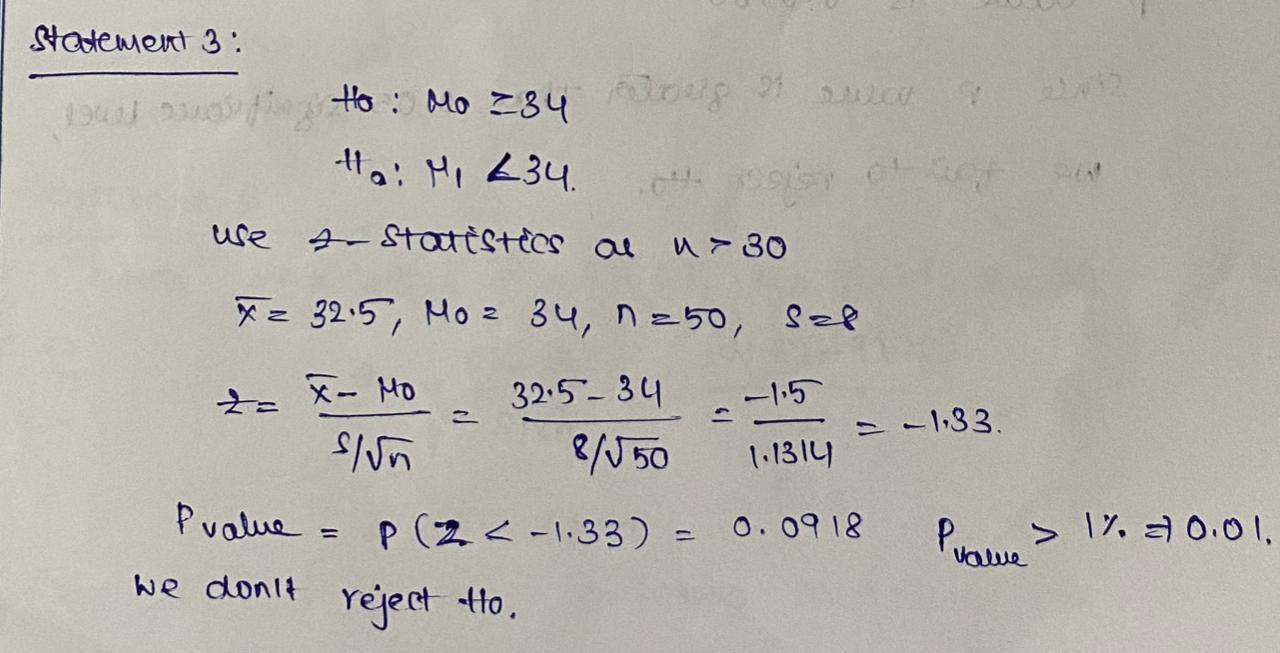 Statement 3:
H0: μ0 = 34
Ha: μ1 < 34.
use z-statistics as n > 30
x̄ = 32.5, μ0 = 34, n = 50, s = 8
z = (x̄ - μ0)/(s/√n) = (32.5 - 34)/(8/√50) = -1.5/1.1314 = -1.33.
P value = P(Z < -1.33) = 0.0918 P value > 1% ⇒ 0.01.
we don't reject H0.